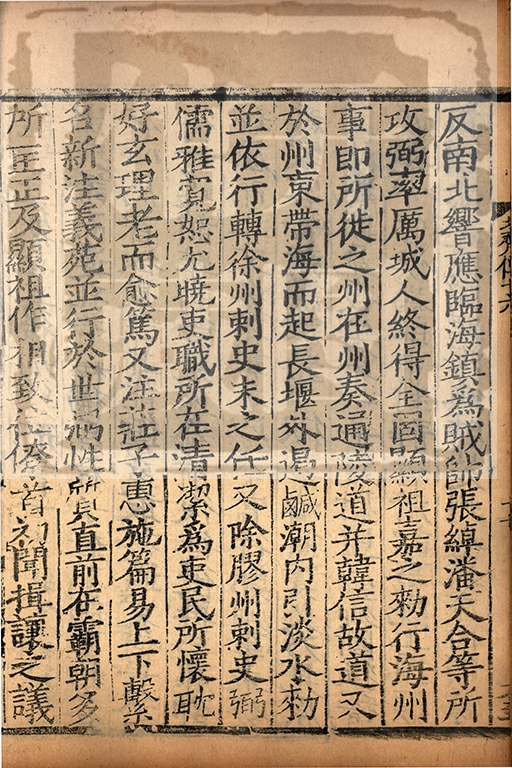 反南北響應臨海鎮爲賊帥張綽潘天合等所
攻弼率厲城人終得全固顯祖嘉之勑行海州
事即所徙之州在州奏通陵道并韓信故道又
於州東帶海而起長堰外遏鹹潮内引淡水勑
並依行轉徐州刺史未之任又除膠州刺史弼
儒雅寬恕尤曉吏職所在清潔爲吏民所懷耽
好玄理老而愈篤又注莊子惠施篇易上下繫
名新注義苑並行於世弼性質直前在霸朝多
所匡正及顯祖作相致位僚首初聞揖讓之議